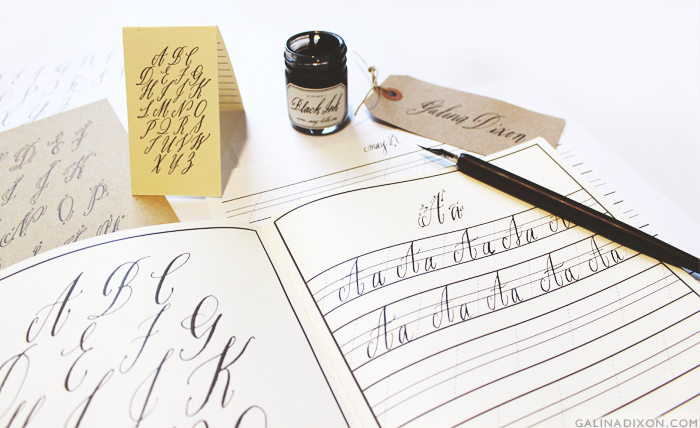 A B C
D E F G
H I J K
L M N O
P Q R S
T U V W
X Y Z
Black Ink
Galina Dixon
may 21
A a
Aa Aa Aa Aa A
Aa Aa Aa Aa Aa
A B C
E F G
I J K
GALINADIXON.COM